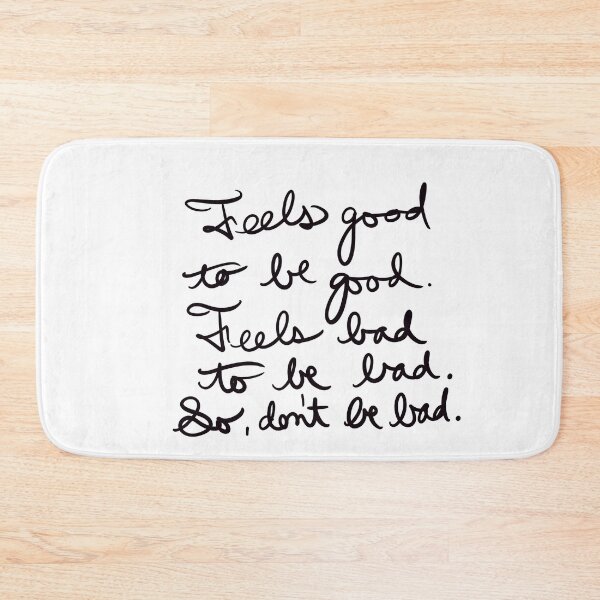 Feels good
to be good.
Feels bad
to be bad.
So, don't be bad.